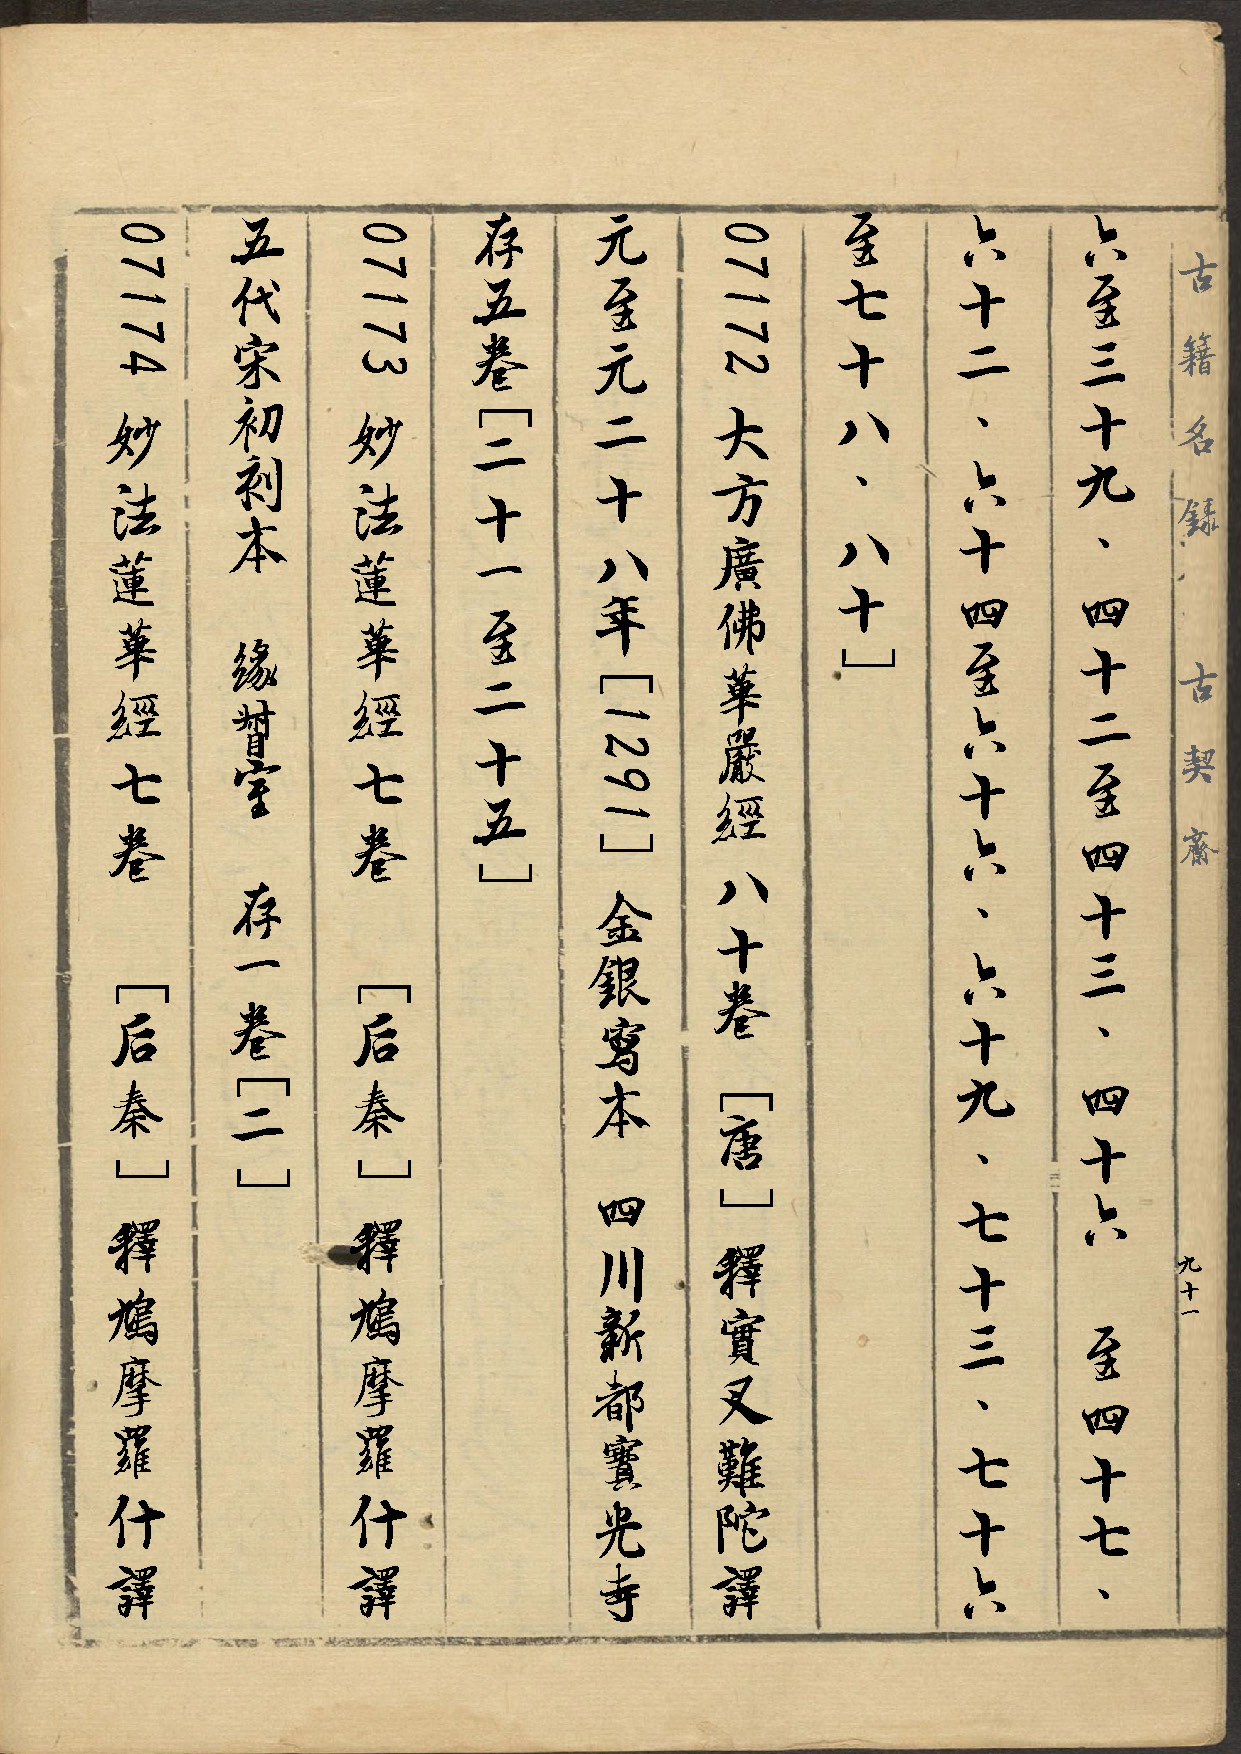 古籍名録 古契齋
九十一
六至三十九、四十二至四十三、四十六 至四十七、
六十二、六十四至六十六、六十九、七十三、七十六
至七十八、八十]
07172 大方廣佛華嚴經 八十卷 [唐] 釋實叉難陀譯
元至元二十八年[1291] 金銀寫本 四川新都寶光寺
存五卷[二十一至二十五]
07173 妙法蓮華經 七卷 [后秦] 釋鳩摩羅什譯
五代宋初刻本 緣督室 存一卷[二]
07174 妙法蓮華經 七卷 [后秦] 釋鳩摩羅什譯